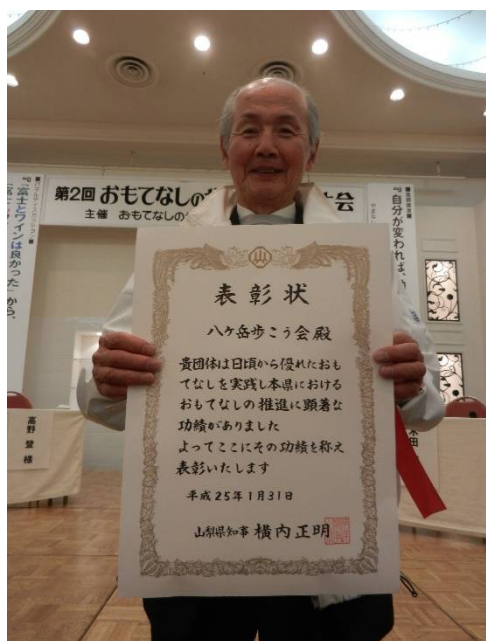 第2回 おもてなしの
大会
主催 おもてなしの
「富士とワインは良かった」から、
『自分が変われば、
高野
様
木田
山
表彰状
八ヶ岳歩こう会殿
貴団体は日頃から優れたおも
てなしを実践し本県における
おもてなしの推進に顕著な
功績がありました
よってここにその功績を称え
表彰いたします
平成25年1月31日
山梨県知事 横内正明